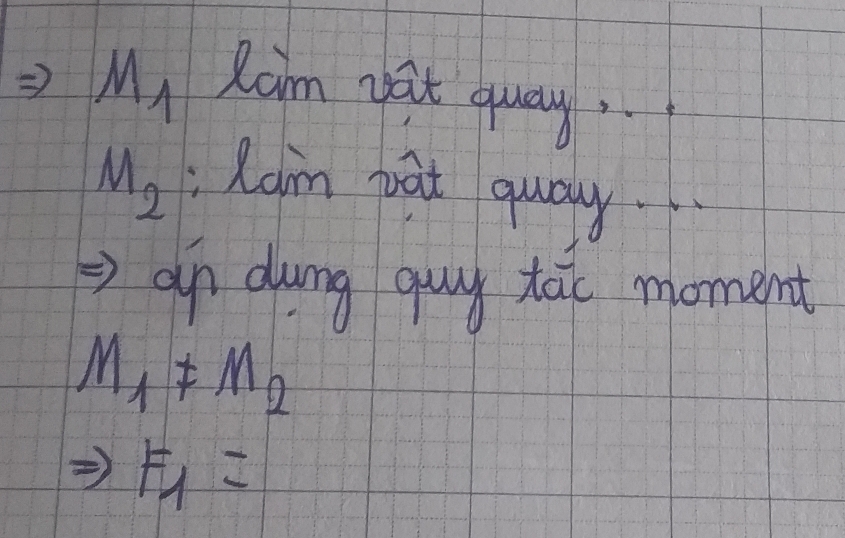 => M₁ làm vật quay ...
M₂ : làm vật quay ...
=> áp dụng quy tắc moment
M₁ ≠ M₂
=> F₁ =